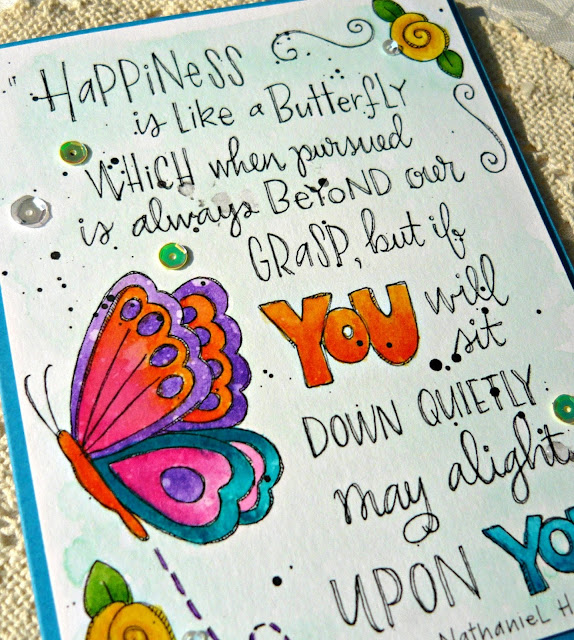 HAPPiNESS
is Like a Butterfly
WHiCH when pursued
is always BEYOND our
GRASP, but if
YOU will
sit
DOWN QUIETLY
may alight
UPON YO
NATHANIEL H